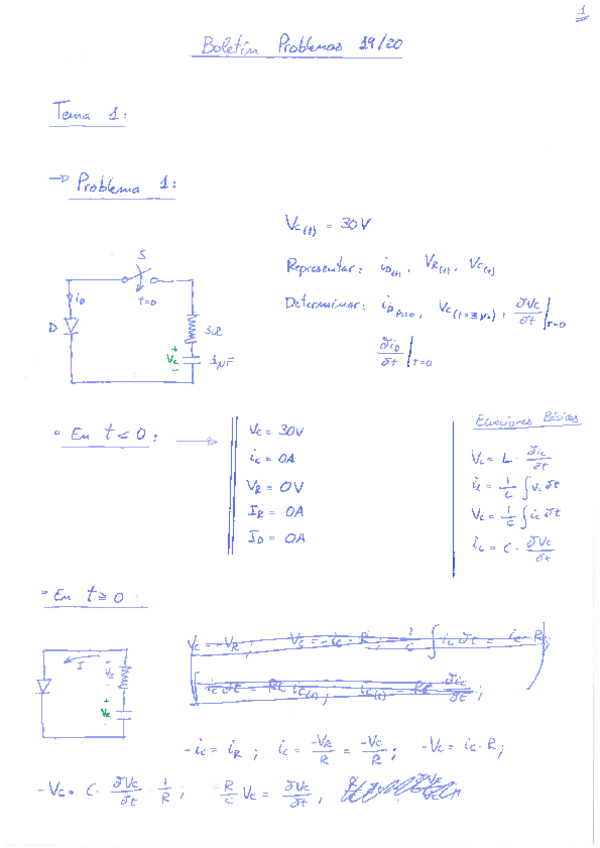 1
Boletín Problemas 19/20
Tema 1:
→ Problema 1:
Vc(t) = 30V
Representar: iD(t), VR(t), Vc(t)
Determinar: iD pico, Vc(t=3μs), ∂Vc/∂t |t=0
∂iD/∂t |t=0
S
t=0
iD
D
3Ω
+
Vc
-
1μF
" En t<0: →
Vc = 30V
ic = 0A
VR = 0V
IR = 0A
ID = 0A
Ecuaciones Básicas
VL = L · ∂iL/∂t
iL = 1/L ∫ VL ∂t
Vc = 1/C ∫ ic ∂t
ic = C · ∂Vc/∂t
" En t≥0:
I
+
Vc
-
- ic = iR ; ic = -VR/R = -Vc/R ; -Vc = ic·R ;
-Vc = C · ∂Vc/∂t · 1/R ; -R/C Vc = ∂Vc/∂t ,